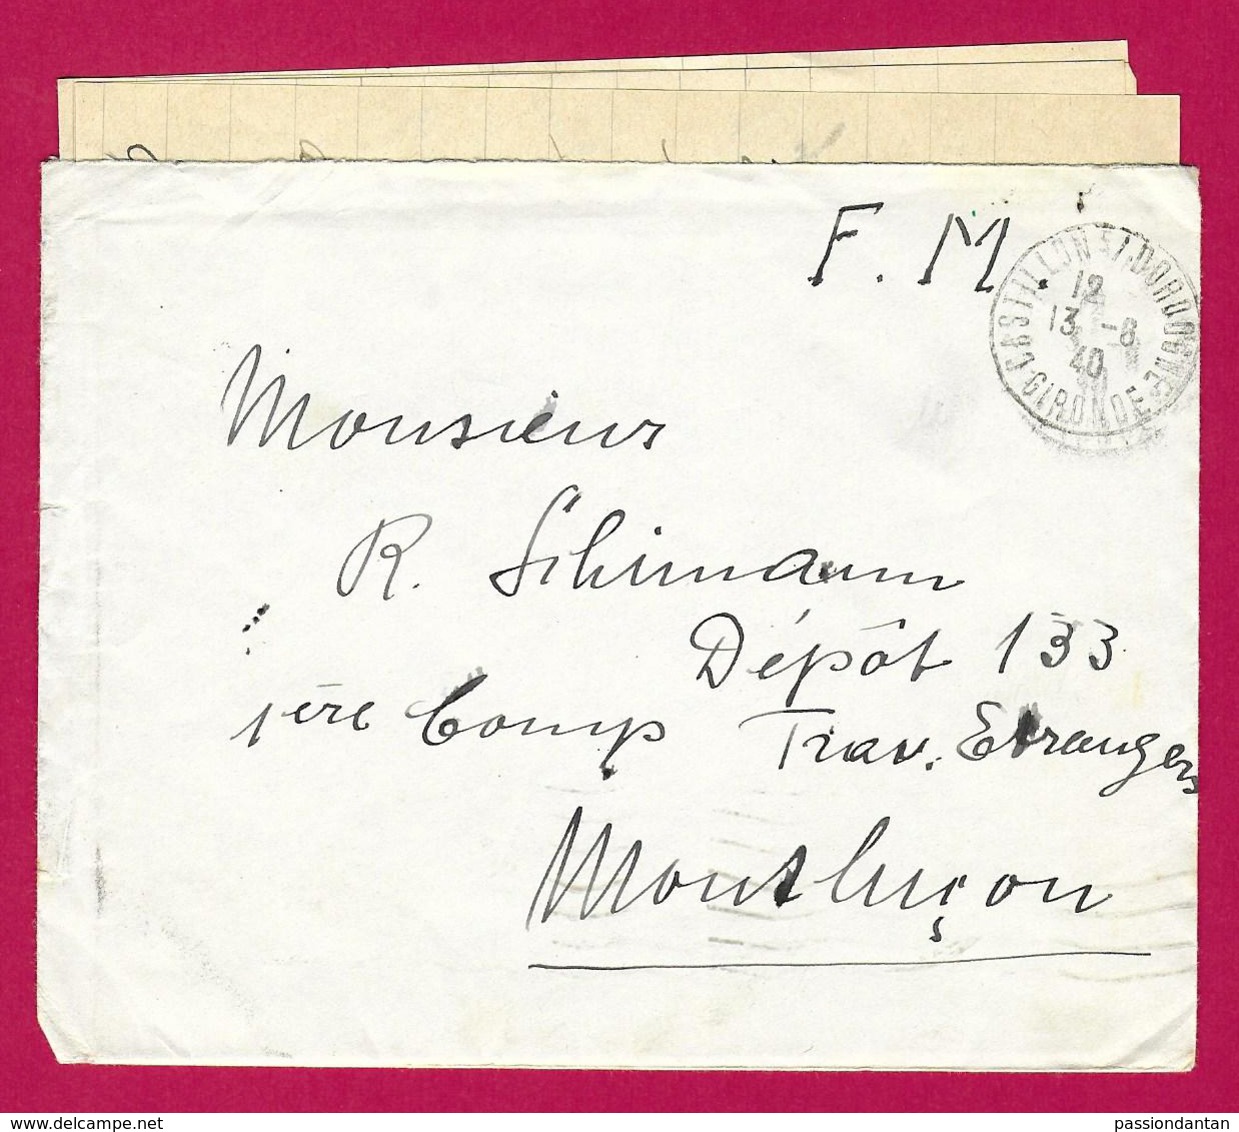 F. M.
CASTILLON S/ DORDOGNE
12
13 -6
40
GIRONDE
Monsieur
R. Schimann
Dépôt 133
1ère Comp Trav. Etrangers
Montluçon
www.delcampe.net
passiondantan